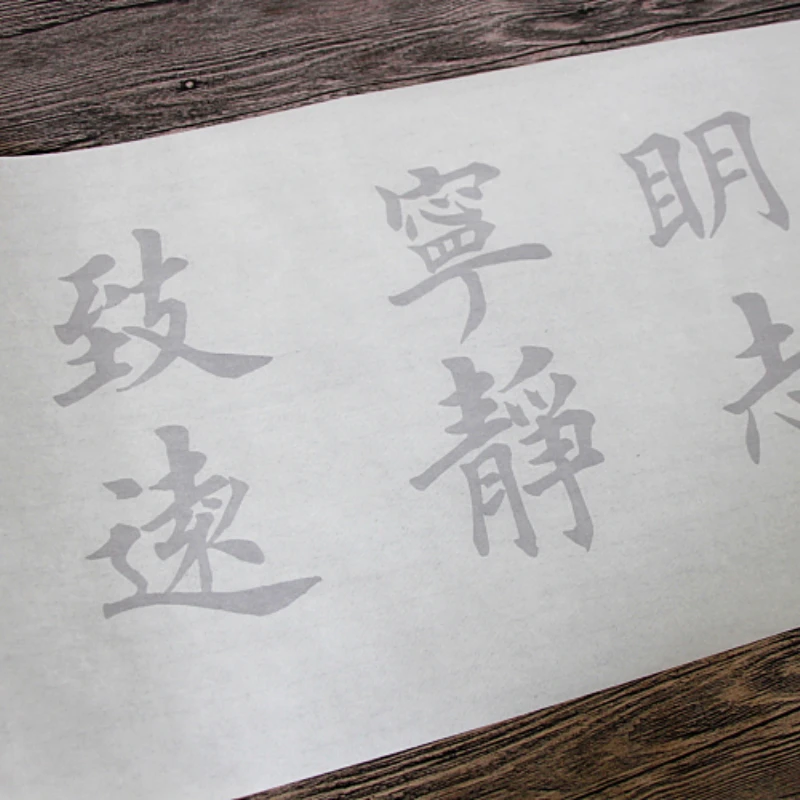 明志
寧靜
致遠